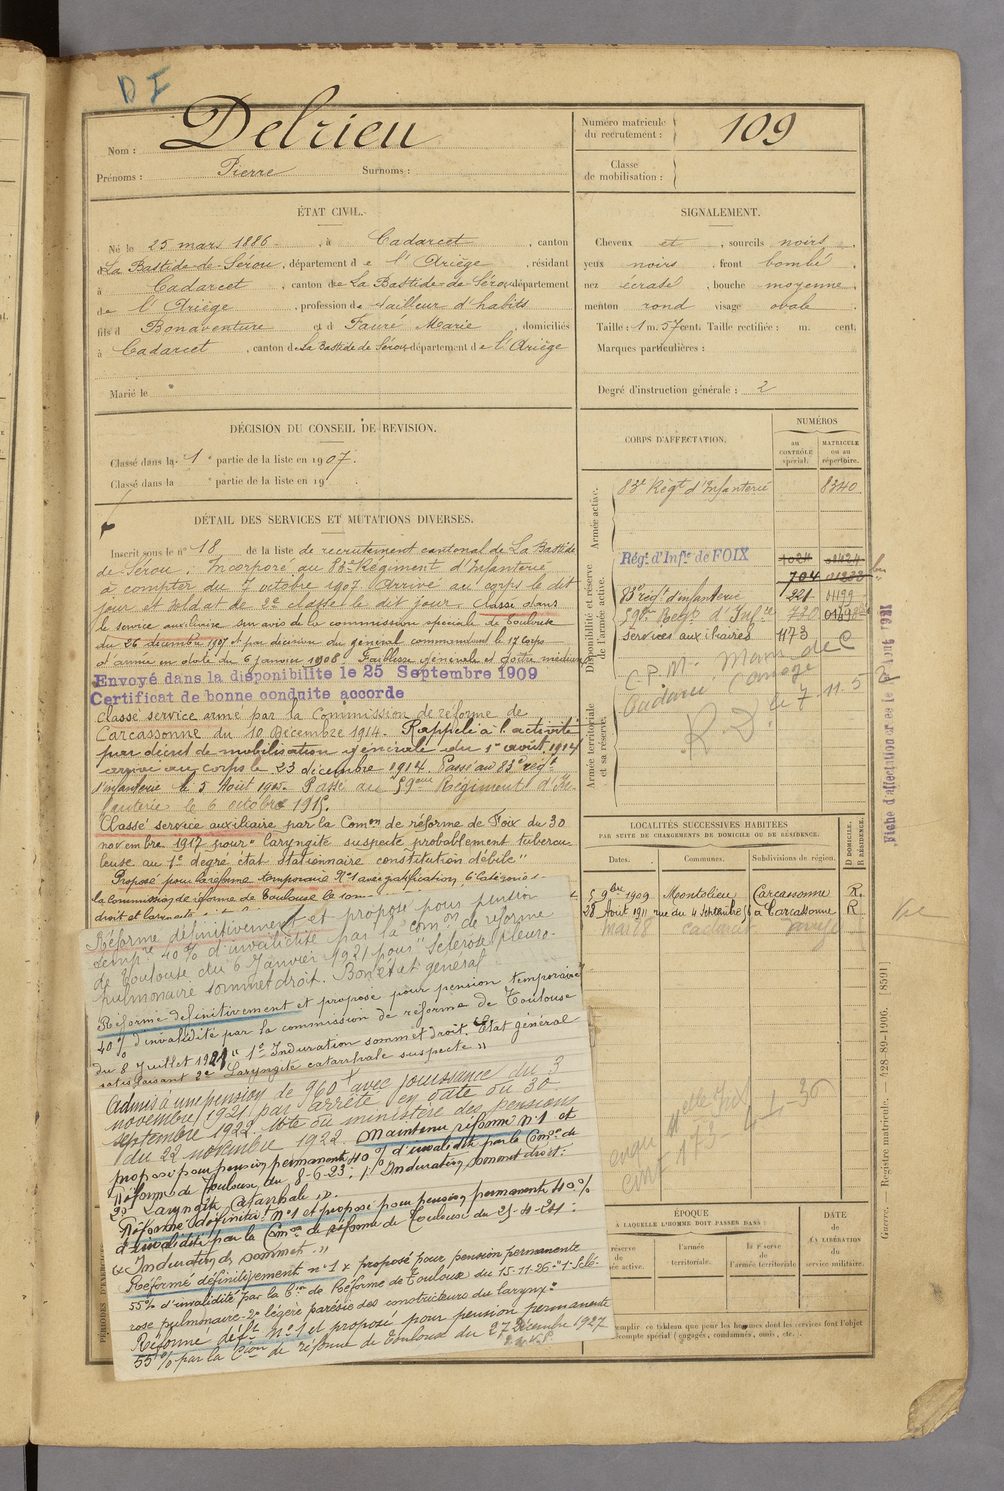 D I
Nom : Delrieu
Prénoms : Pierre Surnoms :
Numéro matricule
du recrutement : 109
Classe
de mobilisation :
ÉTAT CIVIL.
Né le 25 mars 1886, à Cadarcet, canton
de La Bastide-de-Sérou, département de l'Ariège, résidant
à Cadarcet, canton de La Bastide-de-Sérou, département
de l'Ariège, profession de tailleur d'habits
fils d Bonaventure et d Fauré Marie domiciliés
à Cadarcet, canton de La Bastide de Sérou département de l'Ariège
Marié le
SIGNALEMENT.
Cheveux et, sourcils noirs
yeux noirs, front bombé
nez écrasé, bouche moyenne
menton rond visage ovale
Taille : 1 m. 57 cent. Taille rectifiée : m. cent.
Marques particulières :
Degré d'instruction générale : 2
DÉCISION DU CONSEIL DE REVISION.
Classé dans la 1e partie de la liste en 1907.
Classé dans la e partie de la liste en 19
DÉTAIL DES SERVICES ET MUTATIONS DIVERSES.
Inscrit sous le n° 18 de la liste de recrutement cantonal de La Bastide
de Sérou. Incorporé au 83e Régiment d'Infanterie
à compter du 7 octobre 1907. Arrivé au corps le dit
jour et soldat de 2e classe le dit jour. Classé dans
le service auxiliaire sur avis de la commission spéciale de Toulouse
du 26 décembre 1907 et par décision du général commandant le 17 Corps
d'armée en date du 6 janvier 1908. Faiblesse générale et goître médium
Envoyé dans la disponibilite le 25 Septembre 1909
Certificat de bonne conduite accorde
Classé service armé par la Commission de réforme de
Carcassonne du 10 décembre 1914. Rappelé à l'activité
par décret de mobilisation générale du 1er août 1914
arrivé au corps le 23 décembre 1914. Passé au 83e régt
d'infanterie le 5 Août 1915. Passé au 59ème Régiment d'In-
fanterie le 6 octobre 1915.
Classé service auxiliaire par la Comon de réforme de Foix du 30
novembre 1917 pour "laryngite suspecte probablement tubercu-
leuse au 1er degré état stationnaire constitution débile"
Proposé pour la réforme temporaire N°1 avec gratification 6e Catégorie
la commission de réforme de Toulouse le
droit et
Réformé définitivement et proposé pour pension
temp're 40 % d'invalidité par la comon de réforme
de Toulouse du 6 Janvier 1921 pour "Sclérose pleuro-
pulmonaire sommet droit. Bon état général
Réformé définitivement et proposé pour pension temporaire
40 % d'invalidité par la commission de réforme de Toulouse
du 8 Juillet 1921 "1° Induration sommet droit. Etat général
satisfaisant 2° Laryngite catarrhale suspecte"
Admis à une pension de 960 f avec jouissance du 3
novembre 1921 par arrêté en date du 30
septembre 1922. Note du ministère des pensions
du 22 novembre 1922. Maintenu réformé N°1 et
proposé pour pension permanente 40 % d'invalidité par la Comon de
Réforme de Toulouse du 8-6-23: 1° Induration sommet droit:
2° Laryngite Catarrhale".
Réformé définitif N°1 et proposé pour pension permanente 40 %
d'invalidité par la Comon de réforme de Toulouse du 25-4-24:
"Induration du sommet."
Réformé définitivement n°1 & proposé pour pension permanente
55 % d'invalidité par la Cion de Réforme de Toulouse du 15-11-26 "1° Sclé-
rose pulmonaire - 2° légère parésie des constricteurs du larynx"
Réformé déft N°1 et proposé pour pension permanente
55 % par la Cion de réforme de Toulouse du 27 décembre 1927
CORPS D'AFFECTATION.
NUMÉROS
au
CONTRÔLE
spécial.
MATRICULE
ou au
répertoire.
Armée active.
83e Régt d'Infanterie 8340
Disponibilité et réserve
de l'armée active.
Régt d'Infie de FOIX 1024 01424
704
83e régt d'infanterie 221 01199
59ème Regt d'Infie 720
services auxiliaires 1173
Armée territoriale
et sa réserve.
R D
Fiche d'affectation créée le Août 1921
LOCALITÉS SUCCESSIVES HABITÉES
PAR SUITE DE CHANGEMENTS DE DOMICILE OU DE RÉSIDENCE.
Dates. Communes. Subdivisions de région. D DOMICILE. R RÉSIDENCE.
5 9bre 1909 Montolieu Carcassonne R.
28 Août 1911 rue du 4 Septembre 56 à Carcassonne R
mai 28 Cadarcet
ÉPOQUE
À LAQUELLE L'HOMME DOIT PASSER DANS :
DATE
de
LA LIBÉRATION
du
service militaire.
l'armée
territoriale.
la réserve
de
l'armée territoriale
Guerre. — Registre matricule. — 428-89-1906. [8591]